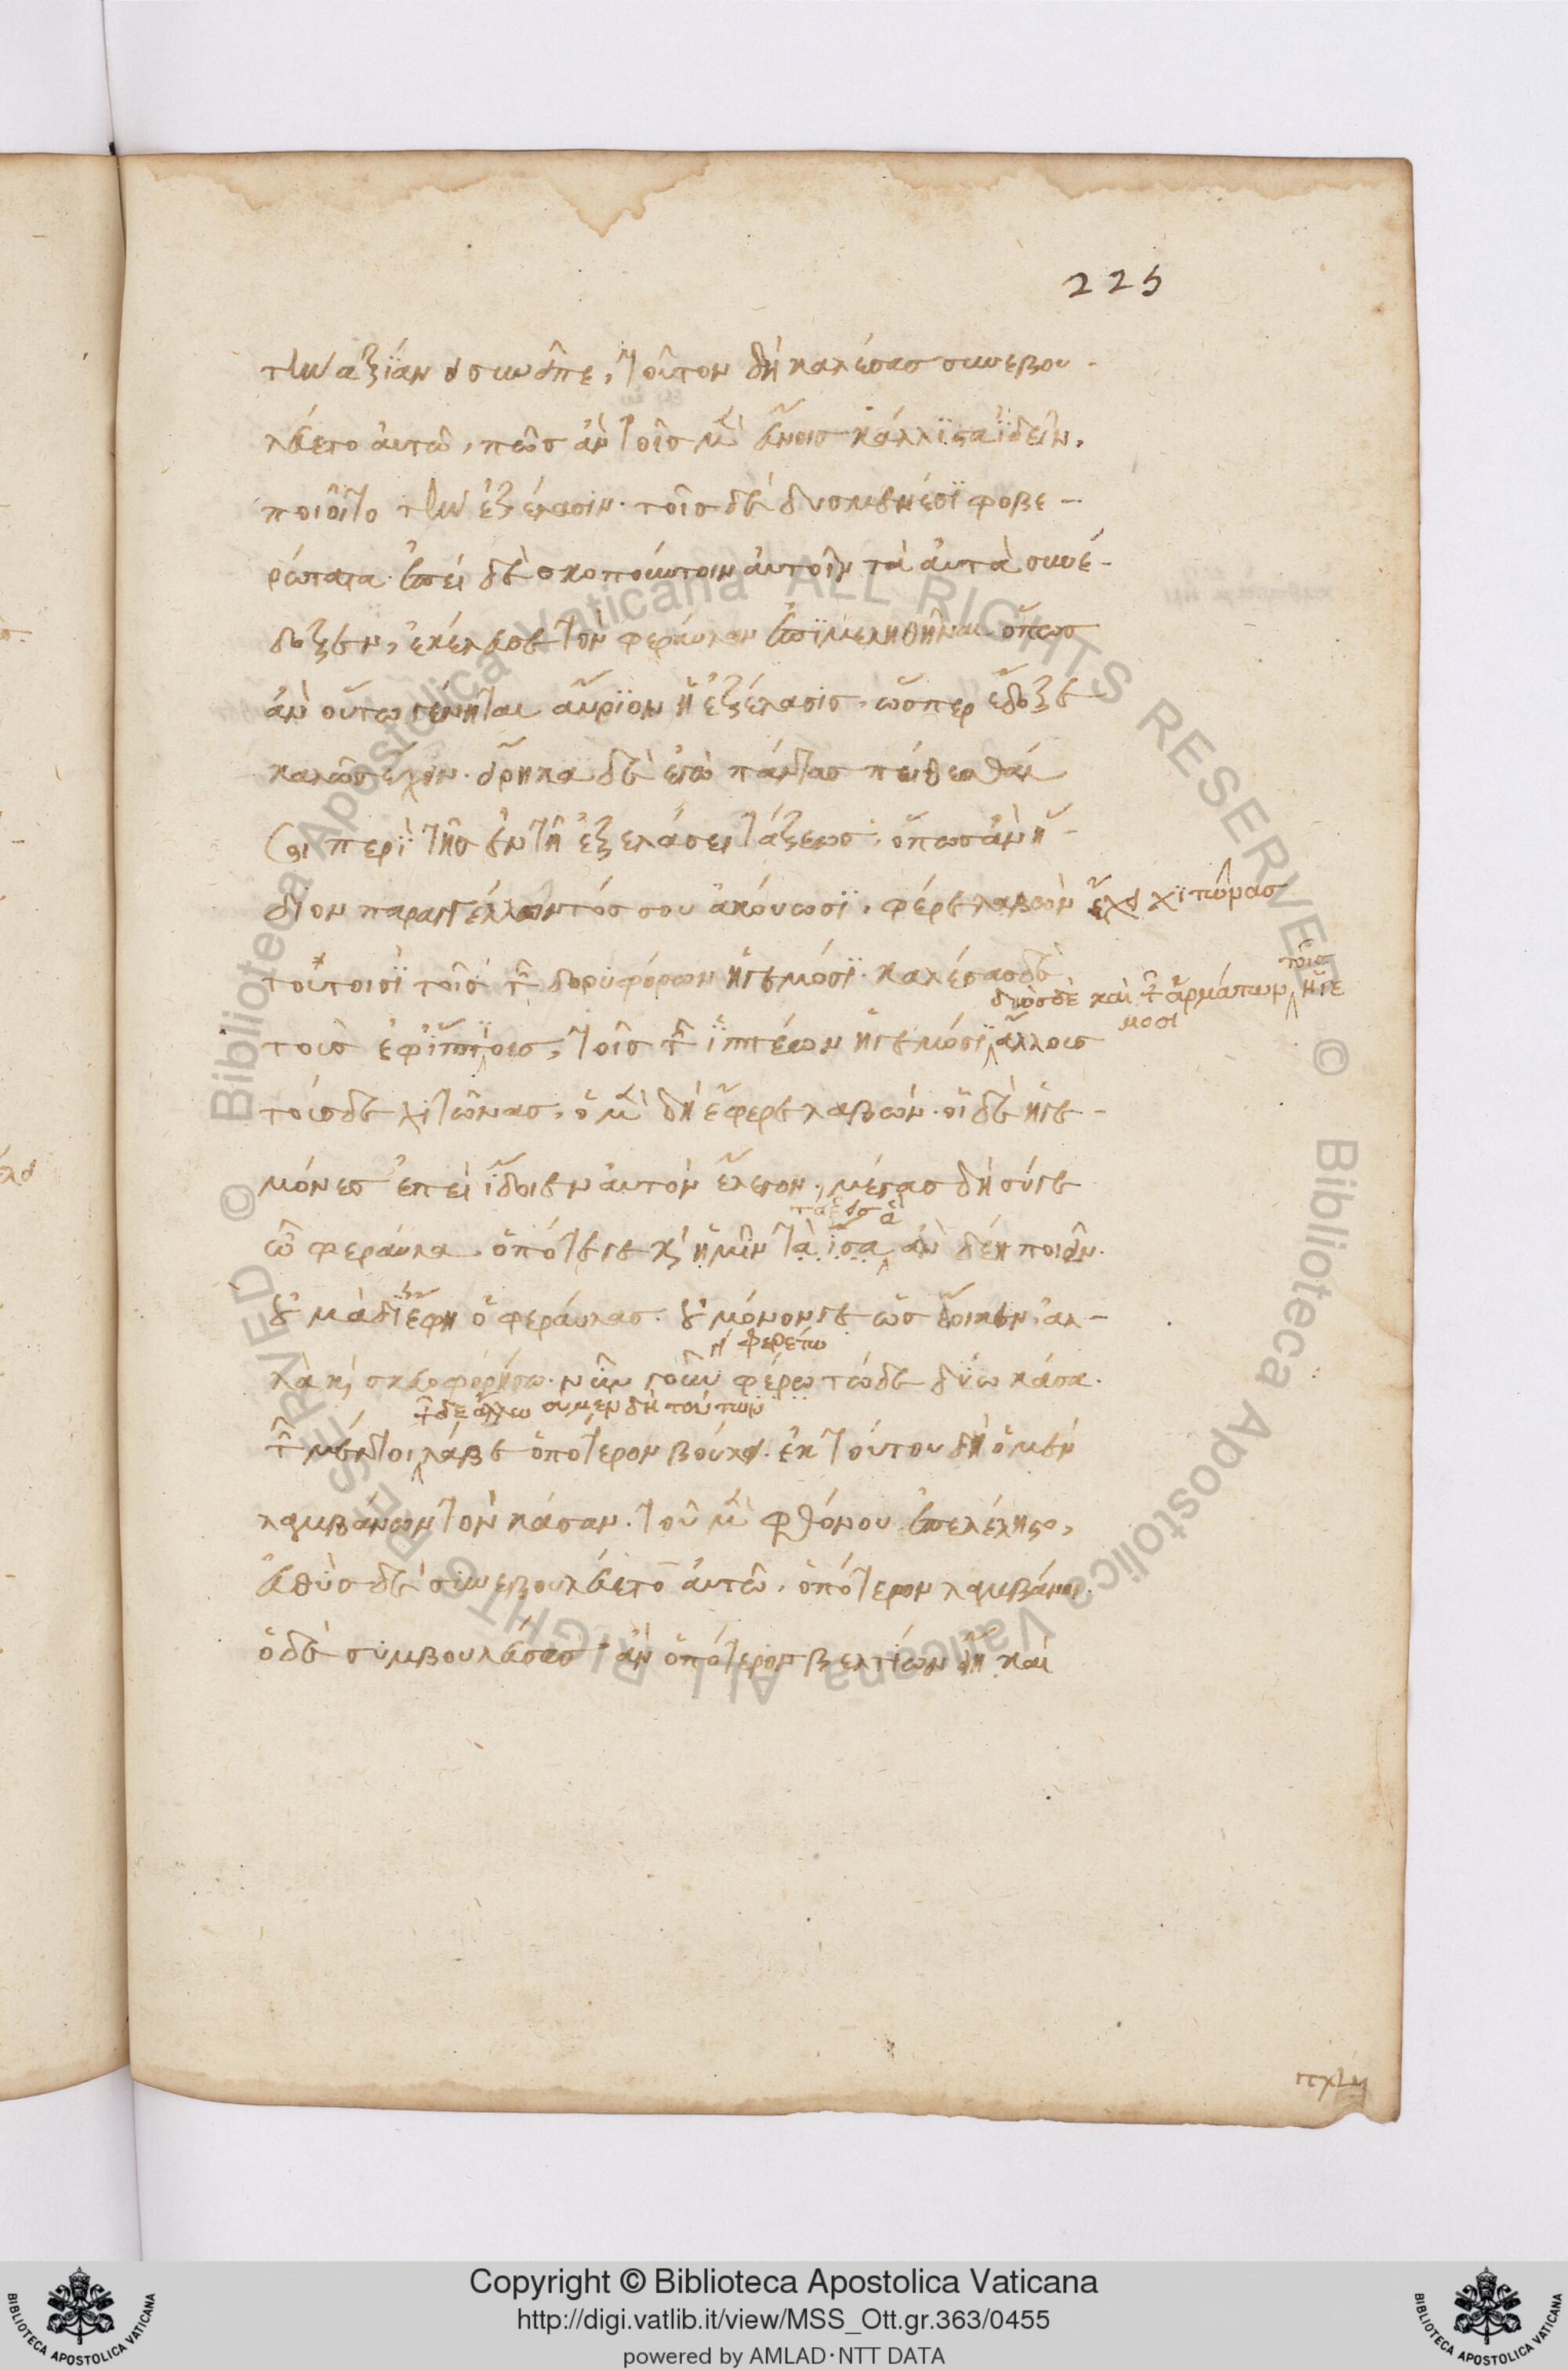 225
τὴν ἀξίαν συνεῖπε, τοῦτον δὴ καλέσας συνεβου-
λεύετο αὐτῷ, πῶς ἂν τοῖς μὲν εὔνοις κάλλιστα ἰδεῖν,
ποιοῖτο τὴν ἐξέλασιν· τοῖς δὲ δυσμενέσι φοβε-
ρώτατα· ἐπεὶ δὲ σκοπούντοιν αὐτοῖν τὰ αὐτὰ συνέ-
δοξεν, ἐκέλευσε τὸν φεραύλαν ἐπιμεληθῆναι ὅπως
ἂν οὕτω γένηται αὔριον ἡ ἐξέλασις, ὥσπερ ἔδοξε
καλῶς ἔχειν· εἴρηκα δὲ ἐγὼ πάντας πείθεσθαί
σοι περὶ τῆς ἐν τῇ ἐξελάσει τάξεως· ὅπως ἂν ἥ-
διον παραγγέλλοντός σου ἀκούωσι, φέρε λαβὼν ἔφη χιτῶνας
τουτοισὶ τοῖς τῶν δορυφόρων ἡγεμόσι· καλέσας δὲ
δὸς δὲ καὶ τῶν ἁρμάτων τοῖς ἡγε
μοσι
τοὺς ἐφίππους, τοῖς τῶν ἱππέων ἡγεμόσι ἄλλους
τούσδε χιτῶνας, ὁ μὲν δὴ ἔφερε λαβών· οἱ δὲ ἡγε-
μόνες ἐπεὶ ἴδοιεν αὐτὸν ἔλεγον, μέγας δὴ σύγε
ταξεις ἃ
ὦ φεραύλα, ὁπότε γε καὶ ἡμῖν τὰ ἴσα ἂν δέῃ ποιεῖν·
οὐ μὰ δί ἔφη ὁ φεραύλας· οὐ μόνον γε ὡς ἔοικεν, ἀλ-
φερετω
λὰ καὶ σκευοφορήσω· νῦν γοῦν φέρω τώδε δύω κάσα·
τῶν δε ἄλλω σύμεν δὴ τούτων
τῶν μέντοι λάβε ὁπότερον βούλει· ἐκ τούτου δὴ ὁ μὲν
λαμβάνων τὸν κάσαν· τοῦ μὲν φθόνου ἐπελέληστο,
εὐθὺς δὲ συνεβουλεύετο αὐτῷ, ὁπότερον λαμβάνοι·
ὁ δὲ συμβουλεύσας ἂν ὁπότερος βελτίων εἴη καὶ